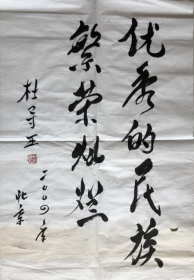 优秀的民族
繁荣灿烂
杜导正
二〇〇四年
北京